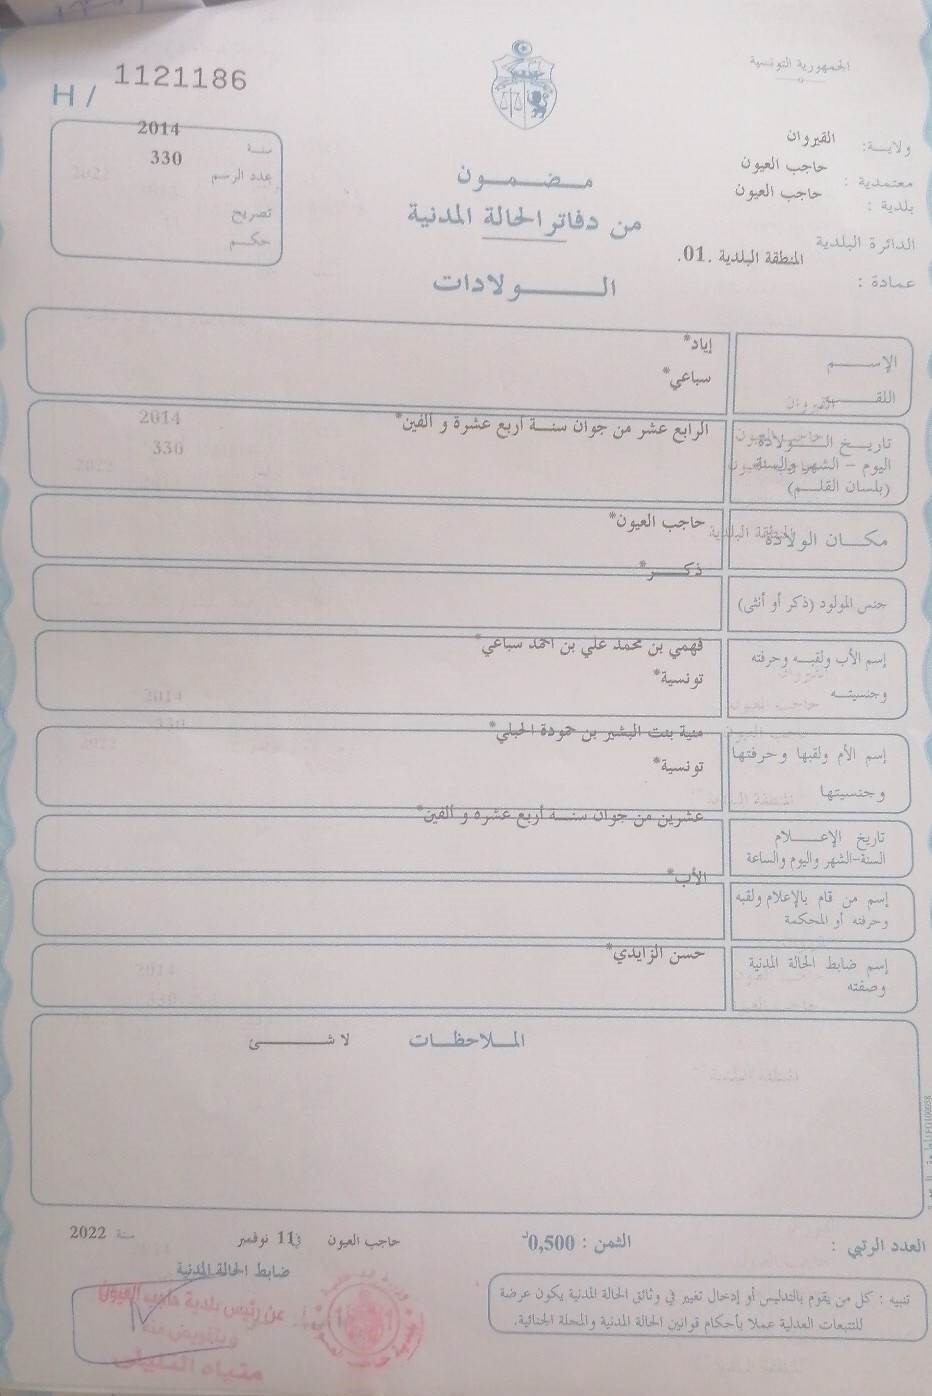 الجمهورية التونسية
H / 1121186
ولايـــة : القيروان
معتمدية : حاجب العيون
بلدية : حاجب العيون
الدائرة البلدية
المنطقة البلدية .01.
عمادة :
سنة 2014
عدد الرسم 330
تصريح
حكم
مضمون
من دفاتر الحالة المدنية
الـولادات
الإسم إياد*
اللقب سباعي*
تاريخ الـولادة الرابع عشر من جوان سنة أربع عشرة و ألفين*
اليوم - الشهر والسنة
(بلسان القلم)
مكان الولادة حاجب العيون*
جنس المولود (ذكر أو أنثى) ذكر*
إسم الأب ولقبه وحرفته فهمي بن محمد علي بن احمد سباعي*
وجنسيته تونسية*
إسم الأم ولقبها وحرفتها منية بنت البشير بن حمودة الحبلي*
وجنسيتها تونسية*
تاريخ الإعلام عشرين من جوان سنة أربع عشرة و ألفين*
السنة-الشهر واليوم والساعة
إسم من قام بالإعلام ولقبه الأب*
وحرفته أو المحكمة
إسم ضابط الحالة المدنية حسن الزايدي*
وصفته
الملاحظات لا شئ
العدد الرتبي : الثمن : 0,500د
حاجب العيون في 11 نوفمبر سنة 2022
ضابط الحالة المدنية
تنبيه : كل من يقوم بالتدليس أو إدخال تغيير في وثائق الحالة المدنية يكون عرضة
للتتبعات العدلية عملا بأحكام قوانين الحالة المدنية والمجلة الجنائية.
عن رئيس بلدية حاجب العيون
وبتفويض منه